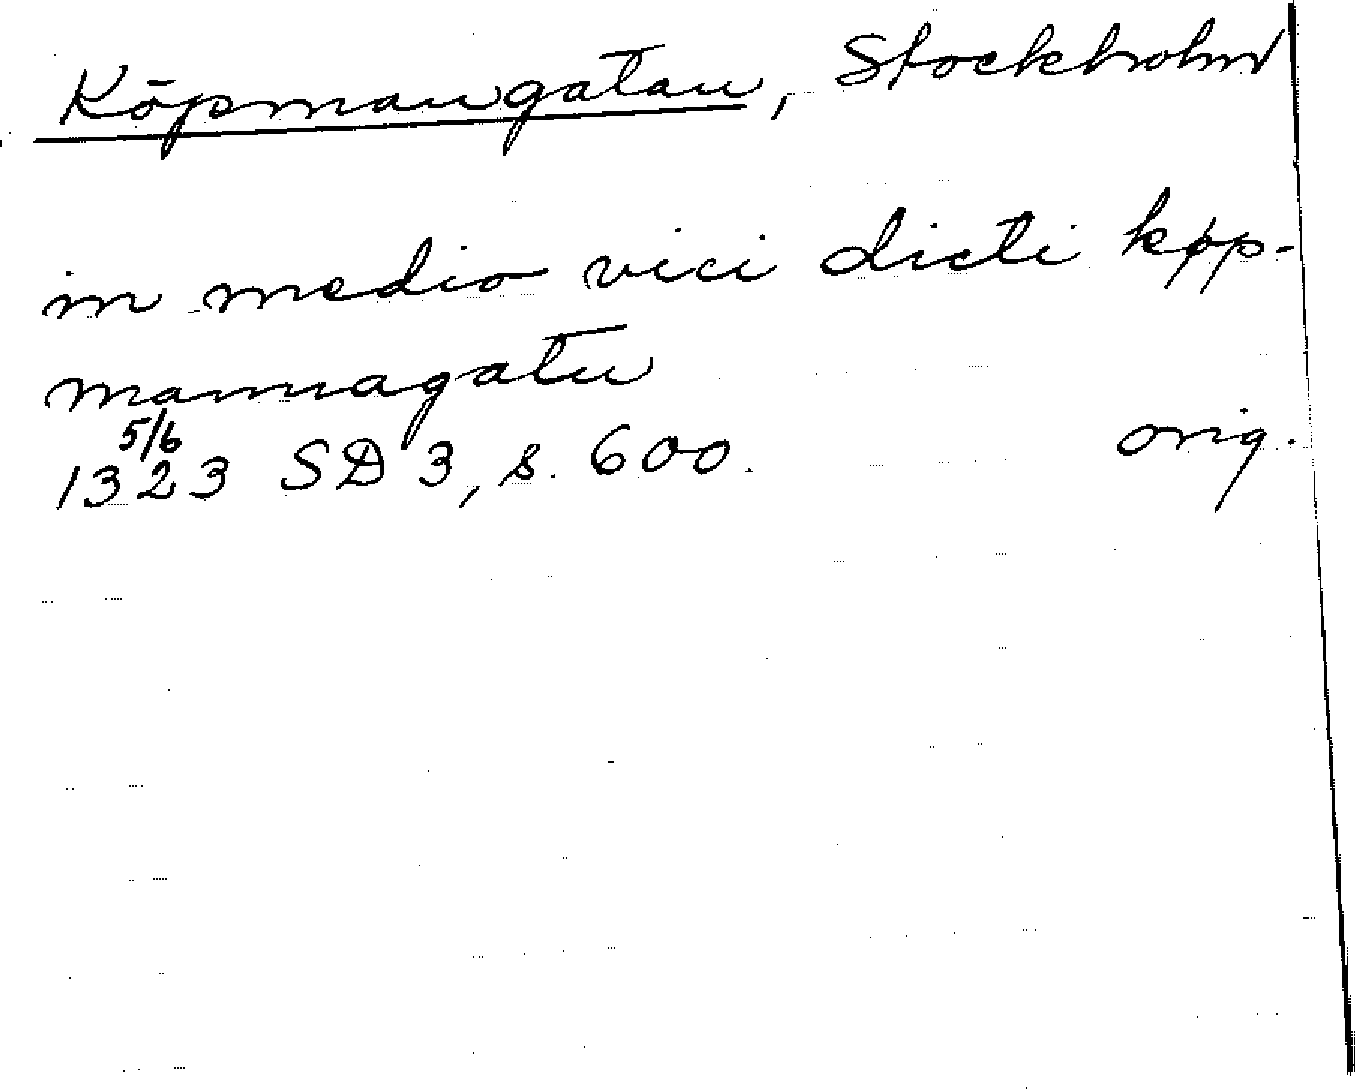 Köpmangatan, Stockholm
in medio vici dicti køp-
mannagatu
5/6
1323 SD 3, s. 600. orig.